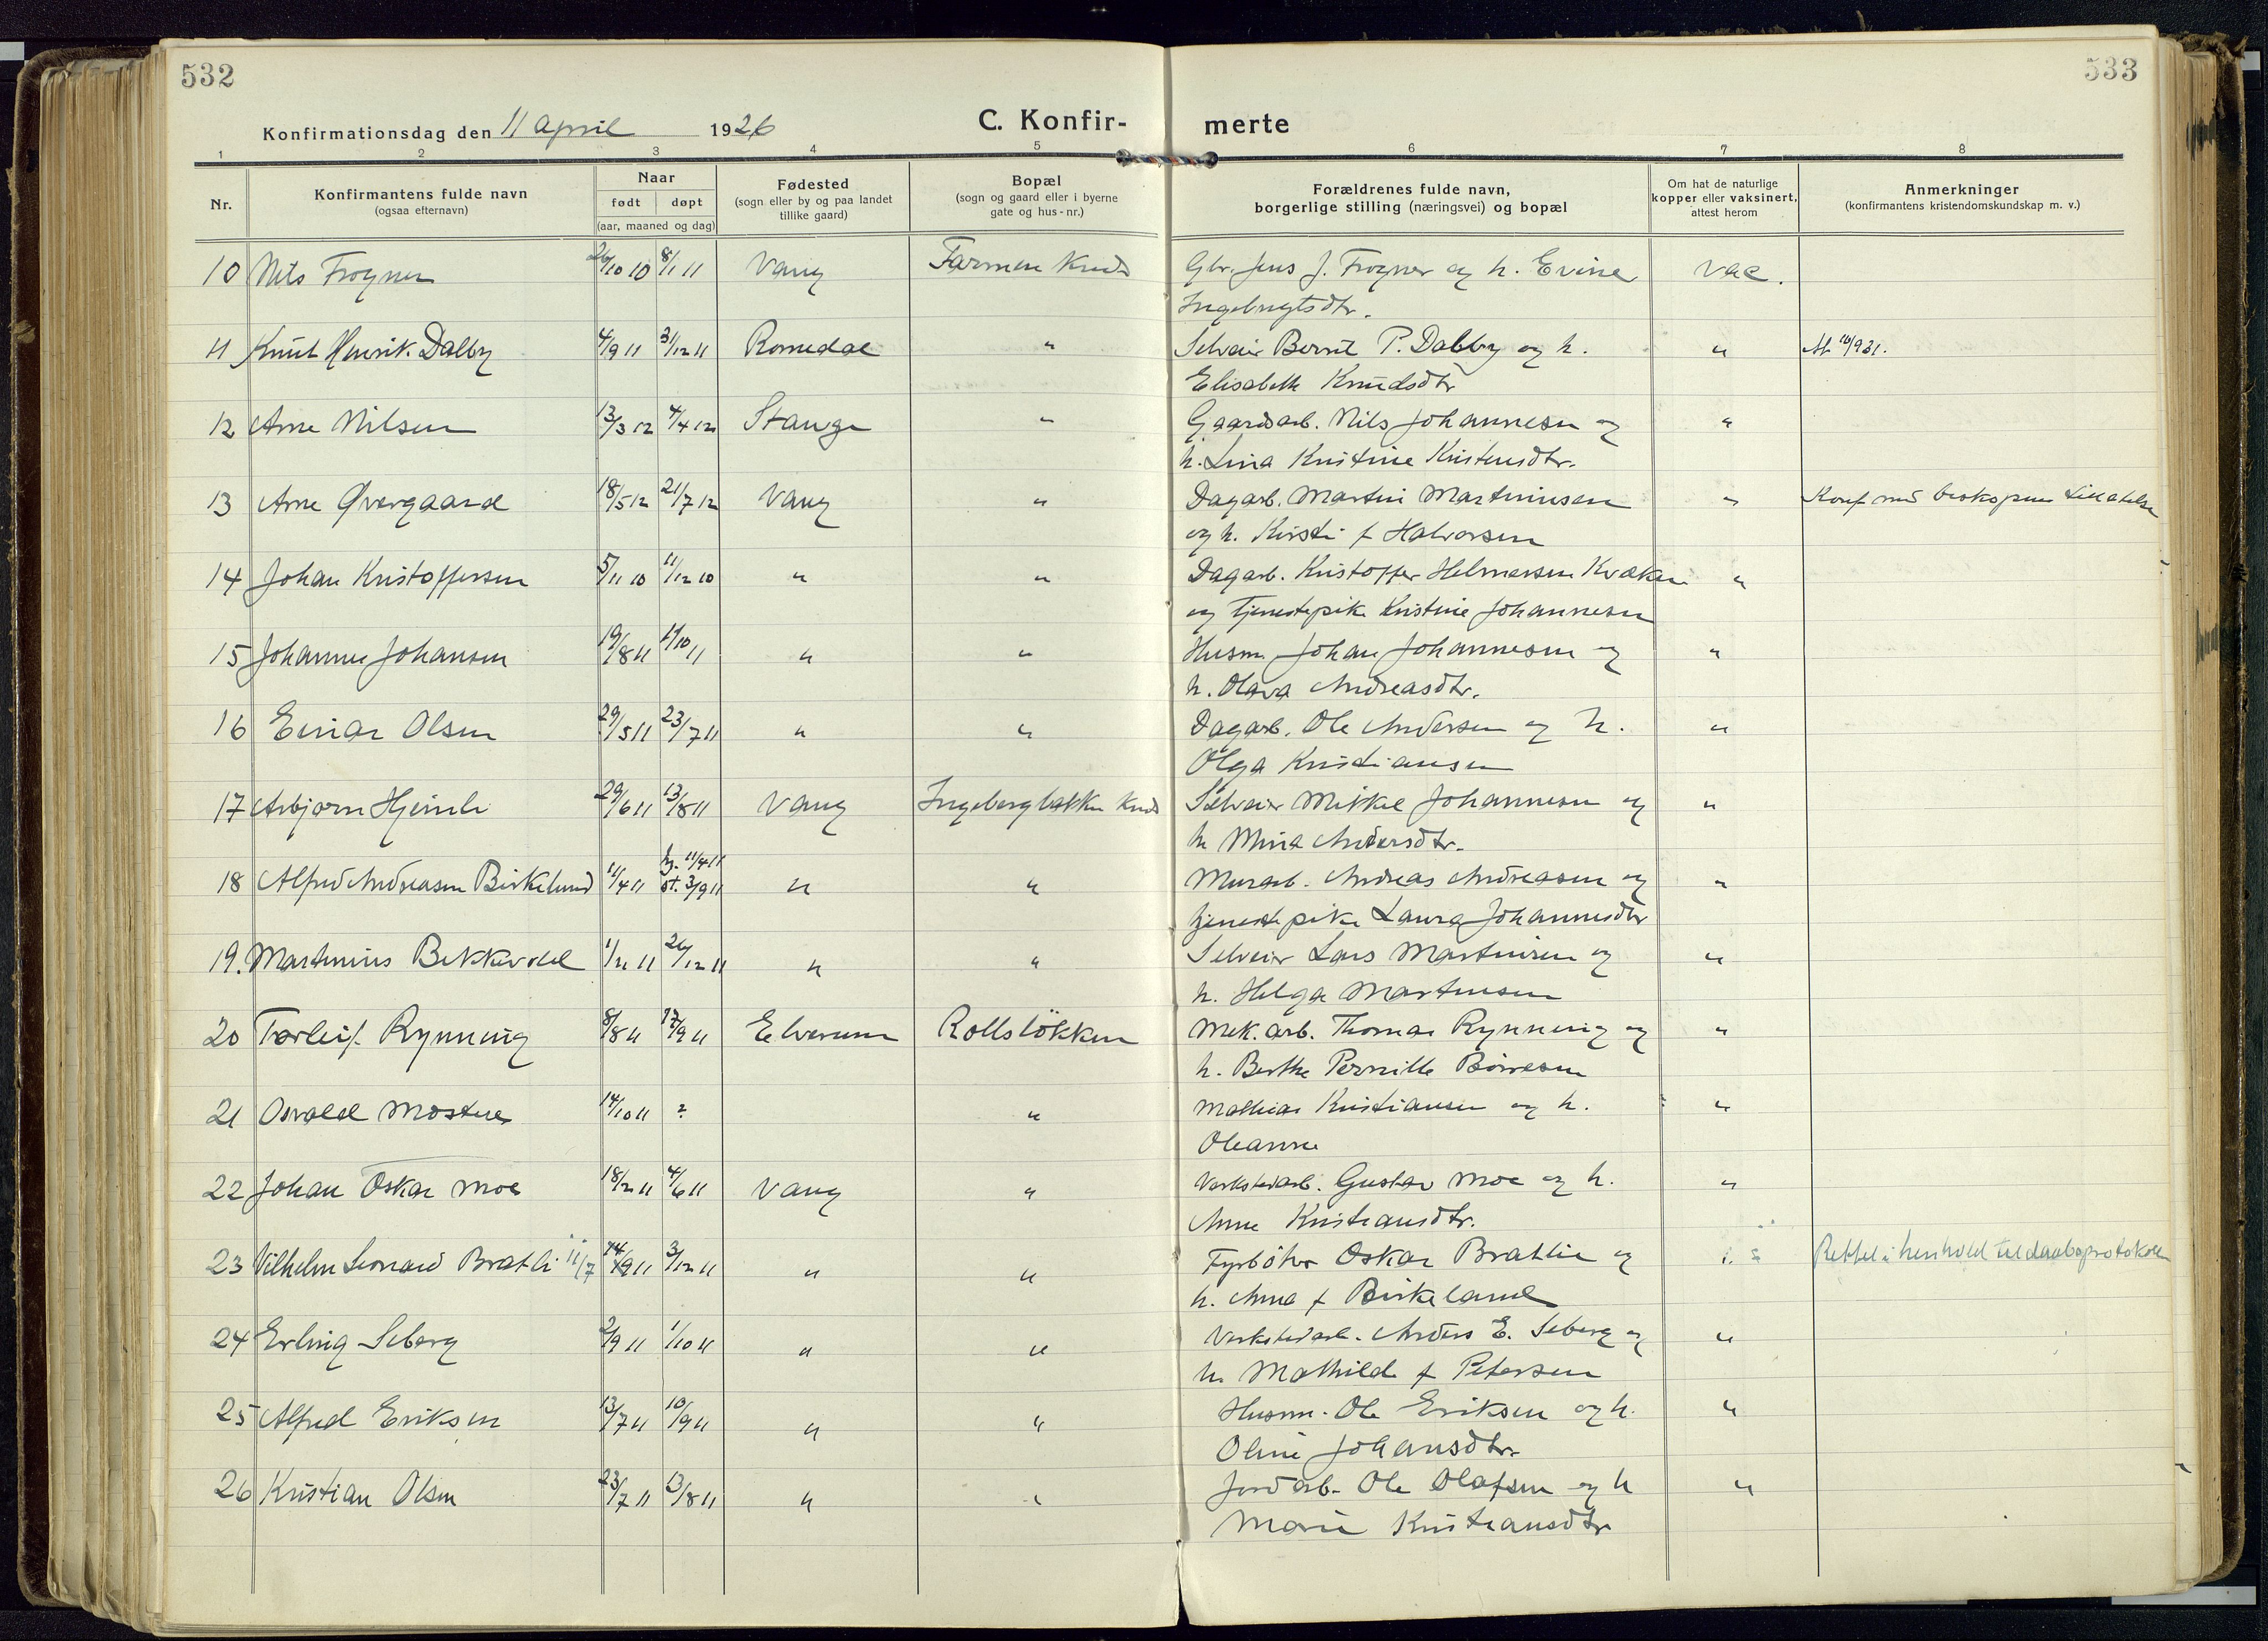 532
533
Konfirmationsdag den 11 april 1926
C. Konfir-
merte
1 2 3 4 5 6 7 8
Nr.
Konfirmantens fulde navn
(ogsaa efternavn)
Naar
født døpt
(aar, maaned og dag)
Fødested
(sogn eller by og paa landet
tillike gaard)
Bopæl
(sogn og gaard eller i byerne
gate og hus-nr.)
Forældrenes fulde navn,
borgerlige stilling (næringsvei) og bopæl
Om hat de naturlige
kopper eller vaksinert,
attest herom
Anmerkninger
(konfirmantens kristendomskundskap m. v.)
10 Nils Frogner 26/10 10 8/1 11 Vang Farmen Gbr. Jens J. Frogner og h. Evine vac.
Ingebrigtsdtr.
11 Knut Henrik Dalby 4/9 11 3/12 11 Romedal " Selveier Bernt P. Dalby og h. " At. 10/9 31.
Elisabeth Knudsdtr
12 Arne Nilsen 13/3 12 4/4 12 Stange " Gaardsarb. Nils Johannesen og "
h. Lina Kristine Kristensdtr.
13 Arne Øvergaard 18/5 12 21/7 12 Vang " Dagarb. Martin Martinusen " Konf med biskopens tillatelse
og h. Kirsti f Halvorsen
14 Johan Kristoffersen 5/11 10 11/12 10 " " Dagarb. Kristoffer Helmersen Kvæken "
og tjenestepike Kristine Johannesen
15 Johannes Johansen 19/8 11 1/10 11 " " Husm. Johan Johannesen og "
h. Olava Andreasdtr.
16 Einar Olsen 29/5 11 23/7 11 " " Dagarb. Ole Andersen og h. "
Olga Kristiansen
17 Asbjørn Hjemli 29/6 11 13/8 11 Vang Ingebergbakken Selveier Mikkel Johannesen og "
h Mina Andersdtr.
18 Alfred Andreasen Birkelund 11/4 11 hj. 11/4 11 st. 3/9 11 " " Murarb. Andreas Andreasen og "
tjenestepike Laura Johannesdtr
19. Martinius Bekkvold 1/11 11 26/12 11 " " Selveier Lars Martinsen og "
h. Helga Martinsen
20 Torleif Rynning 8/8 11 17/9 11 Elverum Rollsløkken Mek. arb. Thomas Rynning og "
h. Berthe Pernille Børresen
21 Osvald Mostue 14/10 11 ? " Mathias Kristiansen og h. "
Oleanne
22 Johan Oskar Moe 18/2 11 4/6 11 Vang " Verkstedarb. Gustav Moe og h. "
Anne Kristiansdtr.
23 Vilhelm Leonard Brathli 11/7 14/9 11 3/12 11 " " Fyrbøter Oskar Brathlie og " Rettet i henhold til daabsprotokoll
h. Anna f Birkeland
24 Erling Seberg 2/9 11 1/10 11 " " Verkstedarb. Anders E. Seberg og "
h. Mathilde f Petersen
25 Alfred Eriksen 13/7 11 10/9 11 " " Husm. Ole Eriksen og h. "
Oline Johansdtr.
26 Kristian Olsen 23/7 11 13/8 11 " " Jordarb. Ole Olafsen og h "
Marie Kristiansdtr